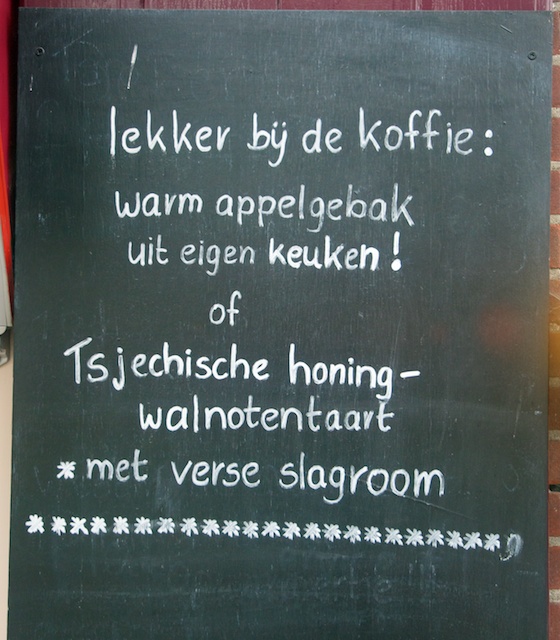 lekker bij de koffie:
warm appelgebak
uit eigen keuken!
of
Tsjechische honing-
walnotentaart
* met verse slagroom
**********************